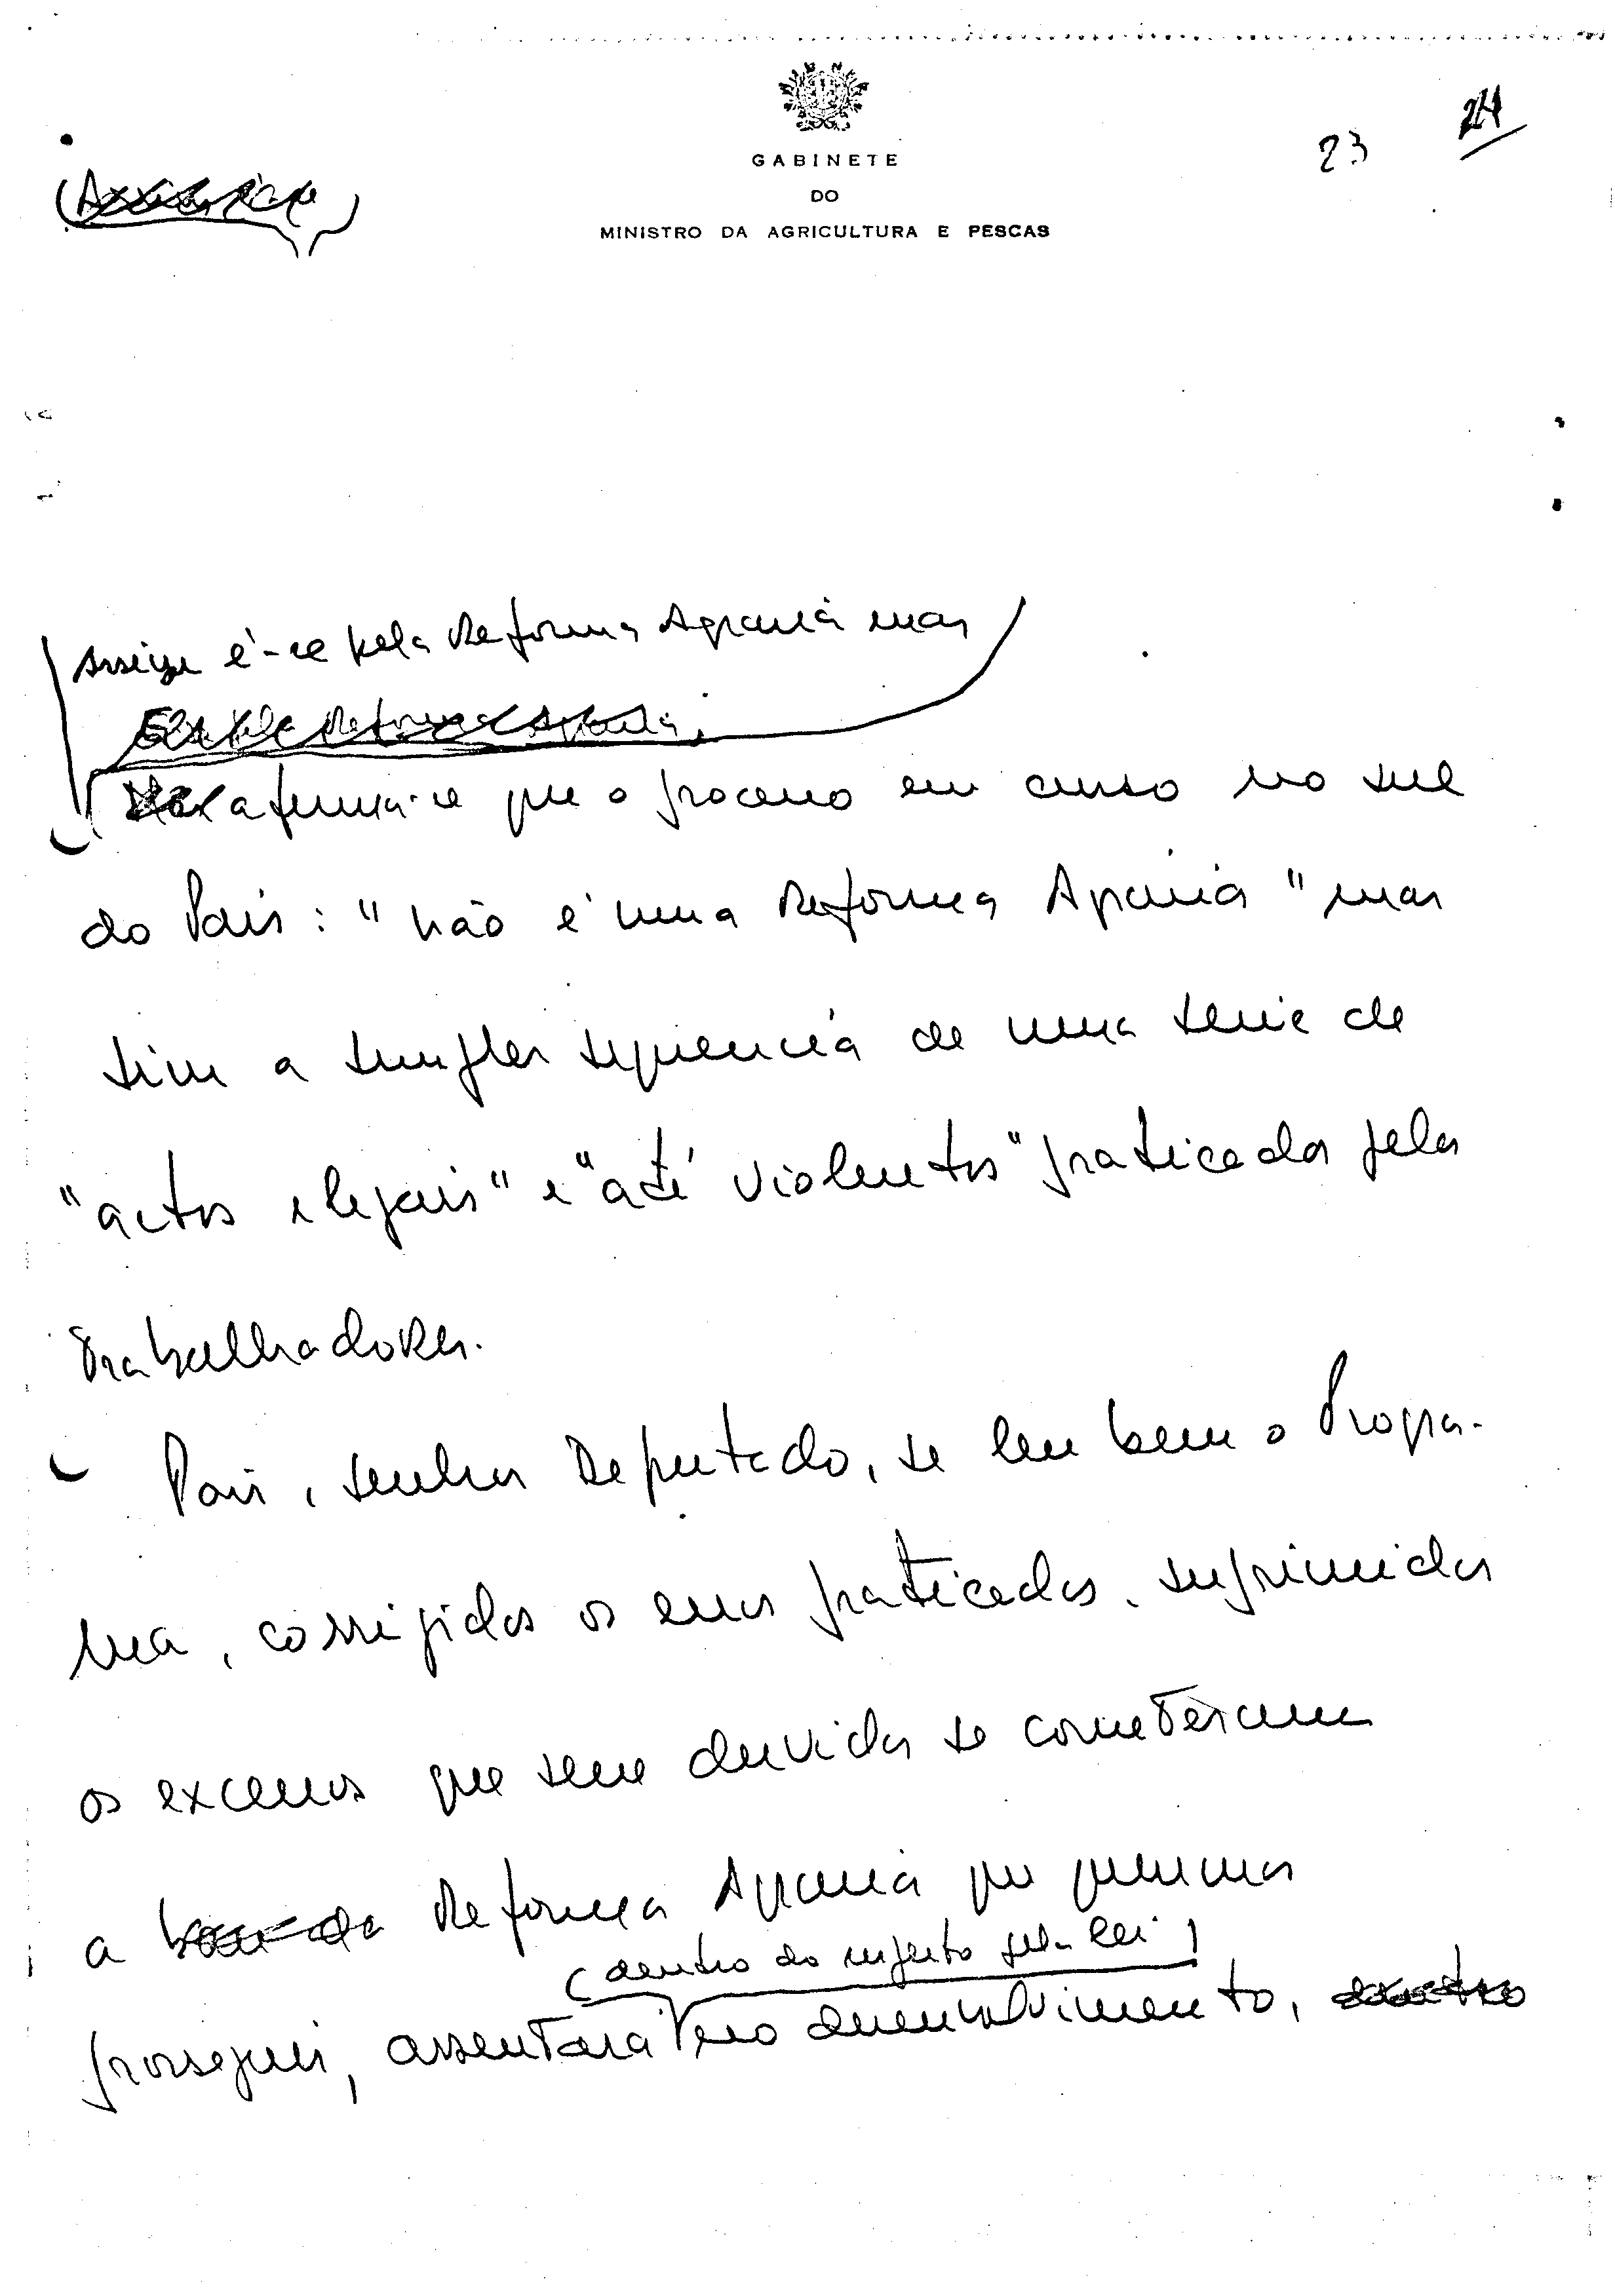 GABINETE
DO
MINISTRO DA AGRICULTURA E PESCAS
23 24
é-se pela Reforma Agrária mas
afirma-se que o processo em curso no sul
do País: "não é uma Reforma Agrária" mas
sim a simples sequencia de uma serie de
"actos ilegais" e "até violentos" praticados pelos
trabalhadores.
Pois, senhor Deputado, se leu bem o Progra-
ma, corrigidos os erros praticados, suprimidos
os excessos que sem duvida se cometeram
a Reforma Agrária que queremos
(dentro do respeito pela lei)
prosseguir, assentará no desenvolvimento,